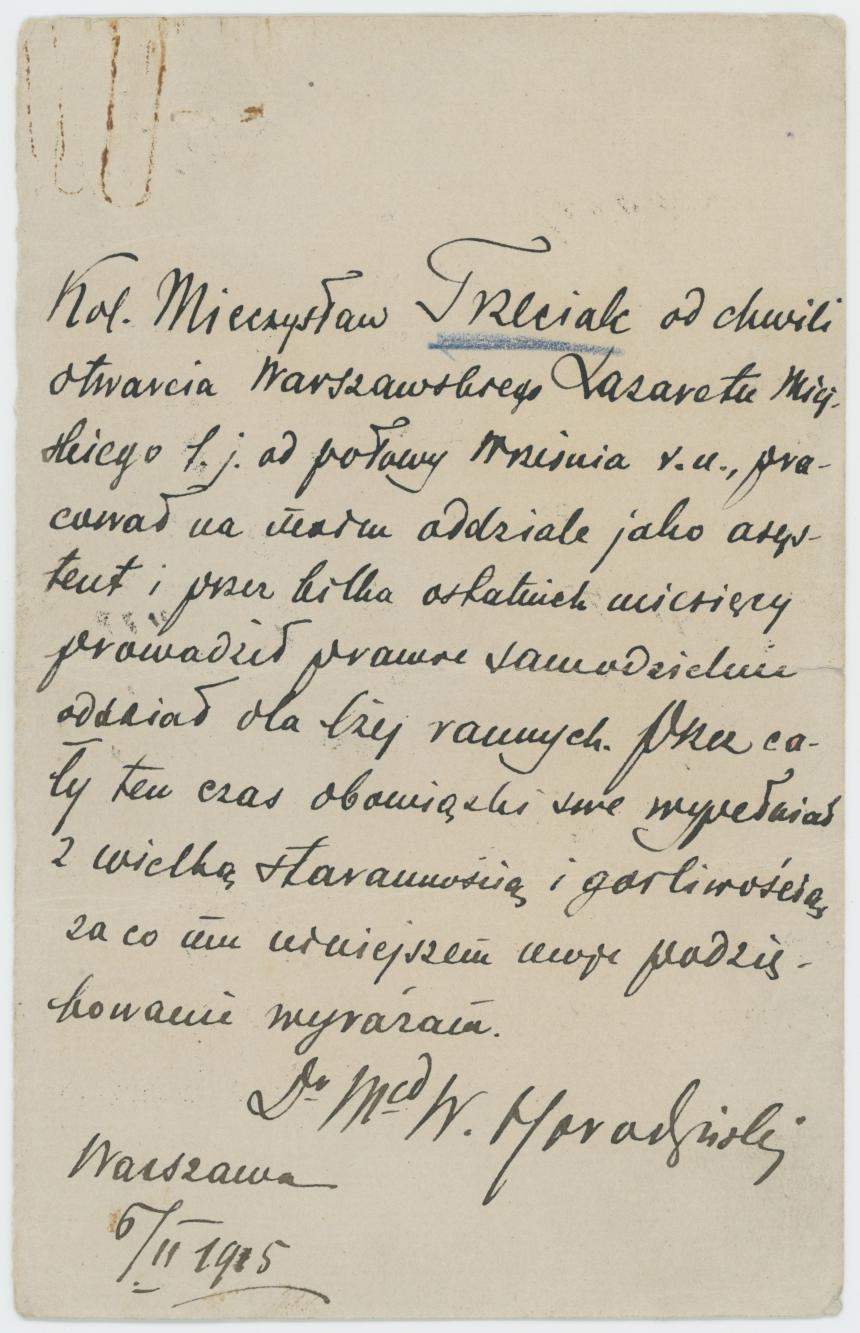 Kol. Mieczysław Trzeciak od chwili
otwarcia Warszawskiego Lazaretu Miej-
skiego t.j. od połowy Września r.u., pra-
cował na moim oddziale jako asys-
tent i przez kilka ostatnich miesięcy
prowadził prawie samodzielnie
oddział dla lżej rannych. Przez ca-
ły ten czas obowiązki swe wypełniał
z wielką starannością i gorliwością
za co mu niniejszem moje podzię-
kowanie wyrażam.
Dr Med W.
Warszawa
6/II 1915